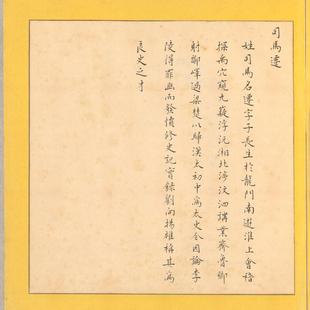 司馬遷
姓司馬名遷字子長生於龍門南遊淮上會稽
探禹穴窺九嶷浮沅湘北涉汶泗講業齊魯鄉
射鄒嶧過梁楚以歸漢太初中為太史令因論李
陵得罪幽而發憤修史記實錄劉向揚雄稱其為
良史之才